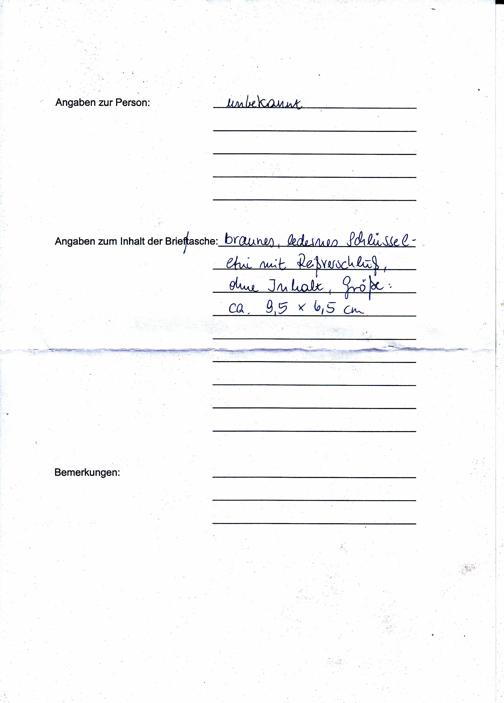 Angaben zur Person: unbekannt
Angaben zum Inhalt der Brieftasche: braunes, ledernes Schlüssel-
etui mit Reßverschluß,
ohne Inhalt, Größe:
ca. 9,5 x 6,5 cm
Bemerkungen: